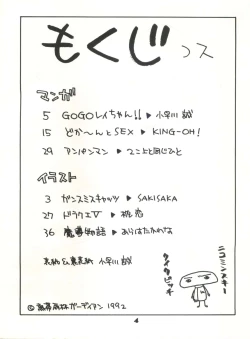 もくじ
コス
マンガ
5 GOGOレイちゃん!! ▶ 小早川 誠
15 どか〜んとSEX ▶ KING-OH!
29 アンパンマン ▶ 2こ上と同じひと
イラスト
3 ガンスミスキャッツ ▶ SAKISAKA
27 ドラクエⅤ ▶ 桃恋
36 魔導物語 ▶ ありはたかわな
表紙&裏表紙 小早川 誠
ニコミンスキー
© 熱帯雨林ガーディアン 1992
4